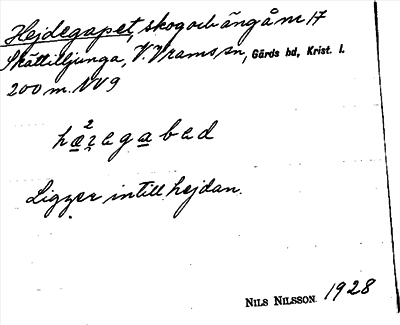 Hejdegapet, skog och äng å nr 17
Skättilljunga, V. Vrams sn, Gärds hd, Krist. l.
200 m. NV 9
Ligger intill hejdan.
NILS NILSSON. 1928